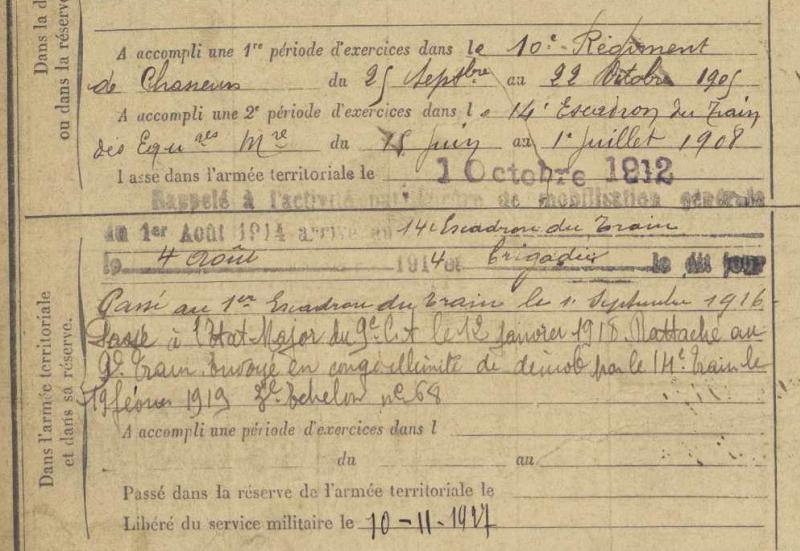 Dans la d
ou dans la réserve
A accompli une 1re période d'exercices dans le 10e Régiment
de Chasseurs du 25 Septbre au 22 Octobre 1905
A accompli une 2e période d'exercices dans l e 14e Escadron du Train
des Equages Mre du 15 Juin au 1er Juillet 1908
Passé dans l'armée territoriale le 1 Octobre 1912
Rappelé à l'activité par ordre de mobilisation générale
du 1er Août 1914 arrivé au 14e Escadron du Train
le 4 Août 1914 et brigadier le dit jour
Dans l'armée territoriale
et dans sa réserve.
Passé au 1er Escadron du Train le 1r Septembre 1916
Passé à l'Etat-Major du 9e C.A le 12 janvier 1918. Rattaché au
9e Train. Envoyé en congé illimité de démob par le 14e Train le
19 février 1919 3e Echelon no 68
A accompli une période d'exercices dans l
du au
Passé dans la réserve de l'armée territoriale le
Libéré du service militaire le 10-11-1927